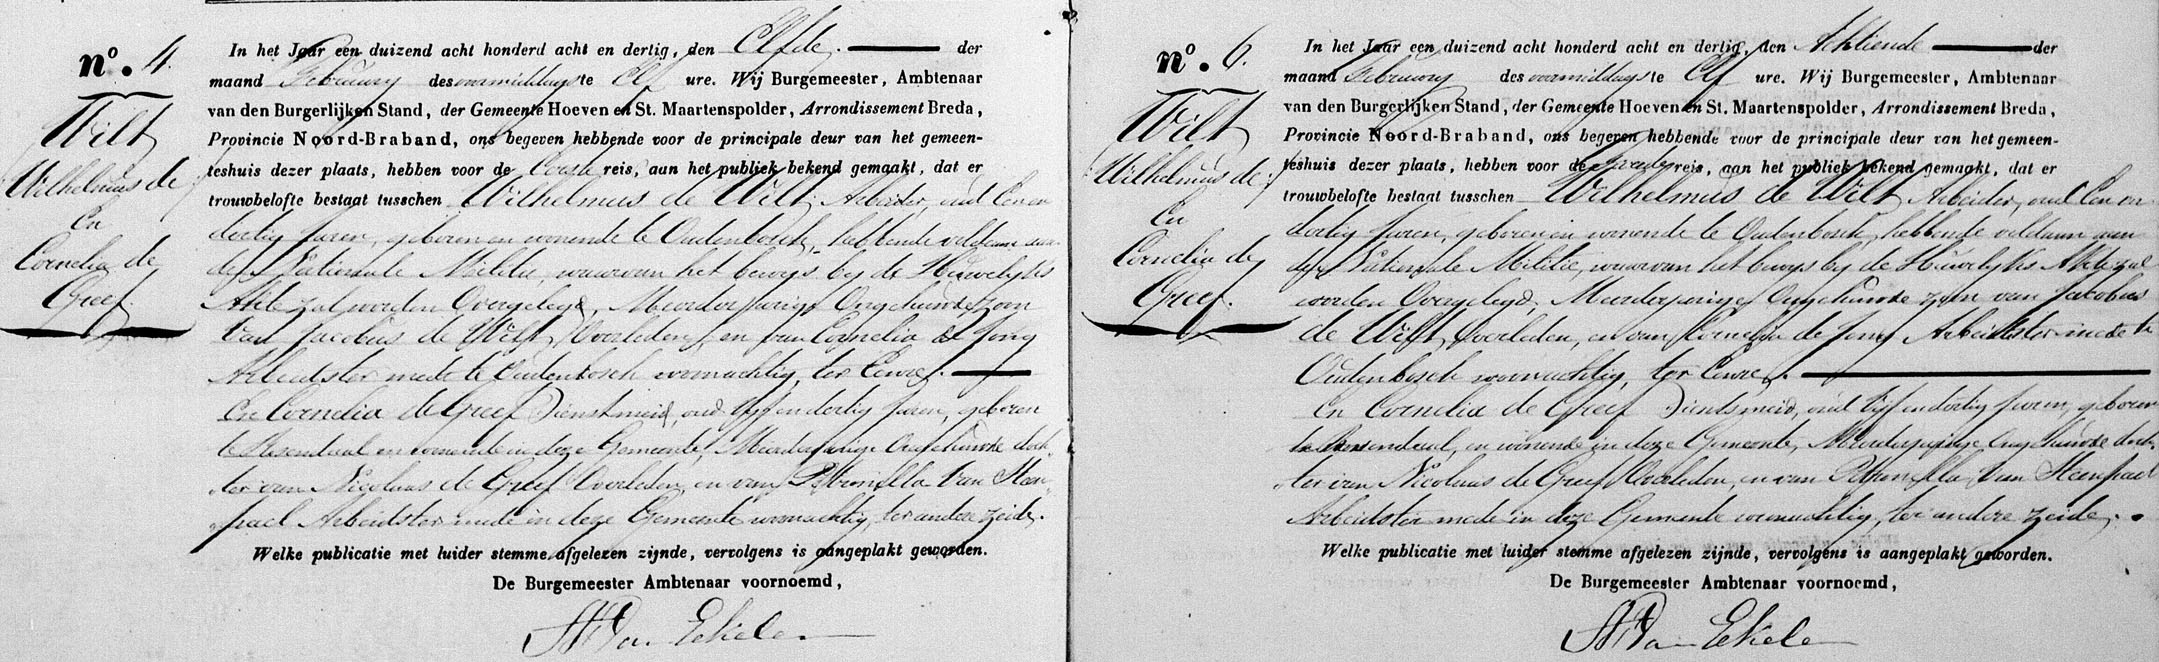 nº. 4.
Wilt
Wilhelmus de
En
Cornelia de
Greef.
In het Jaar een duizend acht honderd acht en dertig, den Elfde der
maand February des voormiddags te Elf ure. Wij Burgemeester, Ambtenaar
van den Burgerlijken Stand, der Gemeente Hoeven en St. Maartenspolder, Arrondissement Breda,
Provincie Noord-Braband, ons begeven hebbende voor de principale deur van het gemeen-
teshuis dezer plaats, hebben voor de Eerste reis, aan het publiek bekend gemaakt, dat er
trouwbelofte bestaat tusschen Wilhelmus de Wilt Arbeider, oud Een en
dertig Jaren, geboren en wonende te Oudenbosch, hebbende voldaan aan
de Nationale Militie, waarvan het bewijs bij de Huwelijks
Akte zal worden Overgelegd, Meerderjarige Ongehuwde zoon
van Jacobus de Wilt, Overleden, en van Cornelia de Jong
Arbeidster mede te Oudenbosch woonachtig, ter Eenre.
En Cornelia de Greef Dienstmeid, oud Vijf en dertig Jaren, geboren
te Rosendaal en wonende in deze Gemeente, Meerderjarige Ongehuwde doch-
ter van Nicolaas de Greef Overleden, en van Petronella Van Steen-
pael Arbeidster mede in deze Gemeente woonachtig, ter andere zeide.
Welke publicatie met luider stemme afgelezen zijnde, vervolgens is aangeplakt geworden.
De Burgemeester Ambtenaar voornoemd,
Van Eekelen
nº. 6.
Wilt
Wilhelmus de
En
Cornelia de
Greef.
In het Jaar een duizend acht honderd acht en dertig, den Achtiende der
maand February des voormiddags te Elf ure. Wij Burgemeester, Ambtenaar
van den Burgerlijken Stand, der Gemeente Hoeven en St. Maartenspolder, Arrondissement Breda,
Provincie Noord-Braband, ons begeven hebbende voor de principale deur van het gemeen-
teshuis dezer plaats, hebben voor de tweede reis, aan het publiek bekend gemaakt, dat er
trouwbelofte bestaat tusschen Wilhelmus de Wilt Arbeider, oud Een en
dertig Jaren, geboren en wonende te Oudenbosch, hebbende voldaan aan
de Nationale Militie, waarvan het bewijs bij de Huwelijks Akte zal
worden Overgelegd, Meerderjarige Ongehuwde zoon van Jacobus
de Wilt, Overleden, en van Cornelia de Jong Arbeidster mede te
Oudenbosch woonachtig, ter Eenre.
En Cornelia de Greef Dientsmeid, oud Vijf en dertig Jaren, geboren
te Rosendaal, en wonende in deze Gemeente, Meerderjarige Ongehuwde doch-
ter van Nicolaas de Greef Overleden, en van Petronella Van Steenpael
Arbeidster mede in deze Gemeente woonachtig, ter andere zeide.
Welke publicatie met luider stemme afgelezen zijnde, vervolgens is aangeplakt geworden.
De Burgemeester Ambtenaar voornoemd,
Van Eekelen